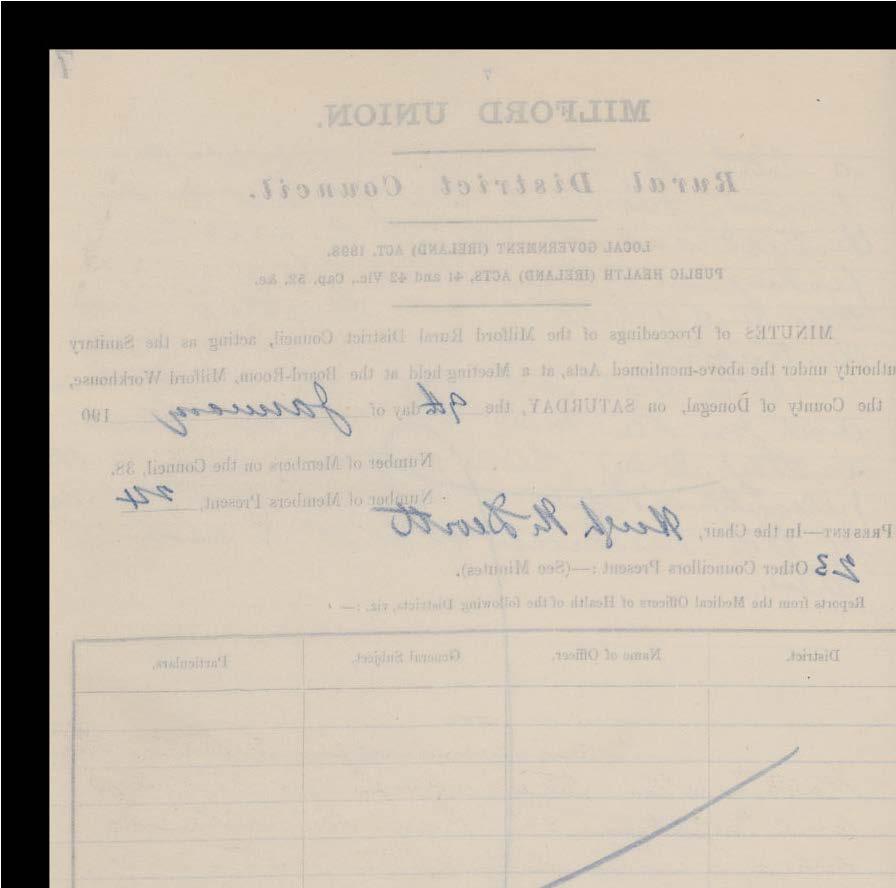 7
7
MILFORD UNION.
Rural District Council.
LOCAL GOVERNMENT (IRELAND) ACT, 1898.
PUBLIC HEALTH (IRELAND) ACTS, 41 and 42 Vic., Cap. 52, &c.
MINUTES of Proceedings of the Milford Rural District Council, acting as the Sanitary
uthority under the above-mentioned Acts, at a Meeting held at the Board-Room, Milford Workhouse,
the County of Donegal, on SATURDAY, the 9th day of January 190
Number of Members on the Council, 38.
Number of Members Present, 24
PRESENT—In the Chair, Hugh
23 Other Councillors Present :—(See Minutes).
Reports from the Medical Officers of Health of the following Districts, viz. :—
District. Name of Officer. General Subject. Particulars.